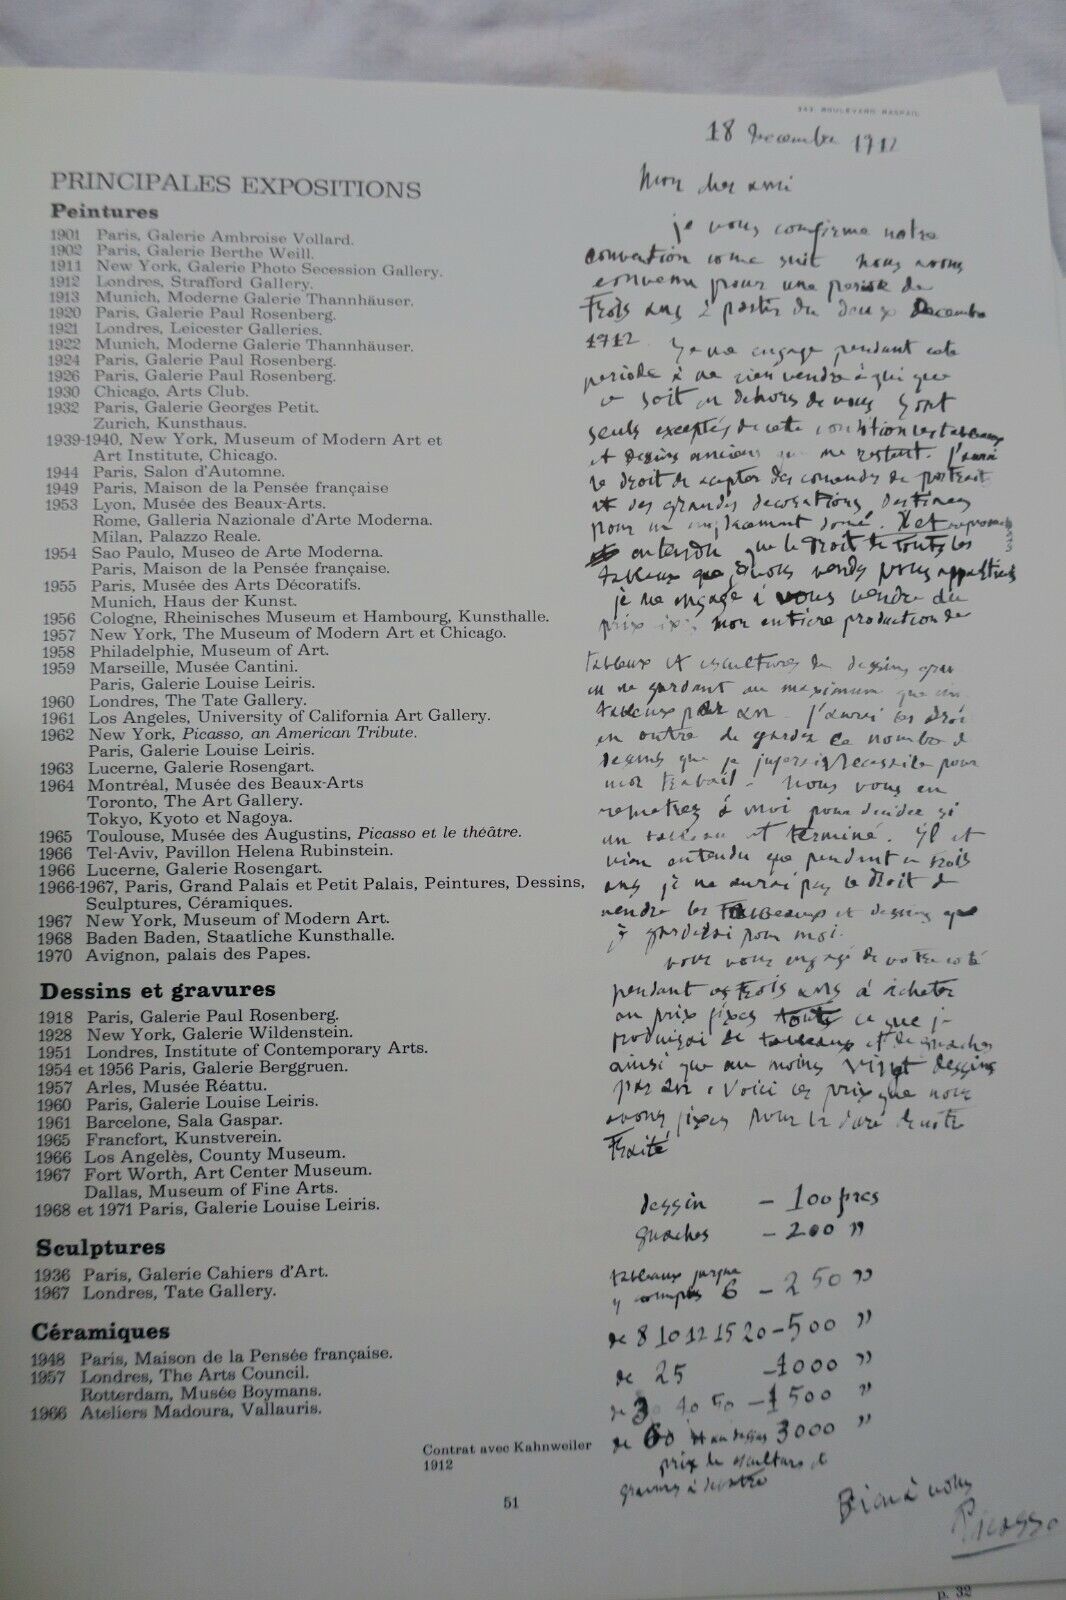 PRINCIPALES EXPOSITIONS
Peintures
1901 Paris, Galerie Ambroise Vollard.
1902 Paris, Galerie Berthe Weill.
1911 New York, Galerie Photo Secession Gallery.
1912 Londres, Strafford Gallery.
1913 Munich, Moderne Galerie Thannhäuser.
1920 Paris, Galerie Paul Rosenberg.
1921 Londres, Leicester Galleries.
1922 Munich, Moderne Galerie Thannhäuser.
1924 Paris, Galerie Paul Rosenberg.
1926 Paris, Galerie Paul Rosenberg.
1930 Chicago, Arts Club.
1932 Paris, Galerie Georges Petit.
Zurich, Kunsthaus.
1939-1940, New York, Museum of Modern Art et
Art Institute, Chicago.
1944 Paris, Salon d'Automne.
1949 Paris, Maison de la Pensée française
1953 Lyon, Musée des Beaux-Arts.
Rome, Galleria Nazionale d'Arte Moderna.
Milan, Palazzo Reale.
1954 Sao Paulo, Museo de Arte Moderna.
Paris, Maison de la Pensée française.
1955 Paris, Musée des Arts Décoratifs.
Munich, Haus der Kunst.
1956 Cologne, Rheinisches Museum et Hambourg, Kunsthalle.
1957 New York, The Museum of Modern Art et Chicago.
1958 Philadelphie, Museum of Art.
1959 Marseille, Musée Cantini.
Paris, Galerie Louise Leiris.
1960 Londres, The Tate Gallery.
1961 Los Angeles, University of California Art Gallery.
1962 New York, Picasso, an American Tribute.
Paris, Galerie Louise Leiris.
1963 Lucerne, Galerie Rosengart.
1964 Montréal, Musée des Beaux-Arts
Toronto, The Art Gallery.
Tokyo, Kyoto et Nagoya.
1965 Toulouse, Musée des Augustins, Picasso et le théâtre.
1966 Tel-Aviv, Pavillon Helena Rubinstein.
1966 Lucerne, Galerie Rosengart.
1966-1967, Paris, Grand Palais et Petit Palais, Peintures, Dessins,
Sculptures, Céramiques.
1967 New York, Museum of Modern Art.
1968 Baden Baden, Staatliche Kunsthalle.
1970 Avignon, palais des Papes.
Dessins et gravures
1918 Paris, Galerie Paul Rosenberg.
1928 New York, Galerie Wildenstein.
1951 Londres, Institute of Contemporary Arts.
1954 et 1956 Paris, Galerie Berggruen.
1957 Arles, Musée Réattu.
1960 Paris, Galerie Louise Leiris.
1961 Barcelone, Sala Gaspar.
1965 Francfort, Kunstverein.
1966 Los Angelès, County Museum.
1967 Fort Worth, Art Center Museum.
Dallas, Museum of Fine Arts.
1968 et 1971 Paris, Galerie Louise Leiris.
Sculptures
1936 Paris, Galerie Cahiers d'Art.
1967 Londres, Tate Gallery.
Céramiques
1948 Paris, Maison de la Pensée française.
1957 Londres, The Arts Council.
Rotterdam, Musée Boymans.
1966 Ateliers Madoura, Vallauris.
Contrat avec Kahnweiler
1912
51
BOULEVARD RASPAIL
18 Decembre 1912
Mon cher ami
je vous confirme notre
convention come suit nous avons
convenu pour une periode de
trois ans à partir du deux Decembre
1912. Je me engage pendant cete
periode à ne rien vendre à qui que
ce soit en dehors de vous Sont
seuls exceptés de cette les tableaux
et dessins anciens que me restent. J'aurai
le droit de acepter des comandes de portrait
et des grandes decorations destinees
pour un emplacement doné.
entendu que le droit de toutes les
tableaux que vous vends vous appartient
je me engage à vous vendre du
prix mon entière production de
tableaux et esculptures
en ne gardant au maximum que cinq
tableaux par an. J'aurai le droit
en outre de garder le nombre de
dessins que je jugerai necessaire pour
mon travail. Vous vous en
remetrez à moi pour decider si
un tableau est terminé. Il est
vien entendu que pendant ces trois
ans je ne aurai pas le droit de
vendre les tableaux et dessins que
je garderai pour moi.
vous vous engagé de votre coté
pendant ces trois ans à acheter
au prix fixes ce que je
produirai de tableaux et de guaches
ainsi que au moins vingt dessins
par an. Voici les prix que nous
avons fixes pour la duré de notre
Traité
dessin – 100 francs
guaches – 200 "
tableaux jusque
y compris 6 – 250 "
de 8 10 12 15 20 – 500 "
de 25 – 1000 "
de 30 40 50 – 1500 "
de 60 et au dessus 3000 "
prix de esculture et
gravures à
Bien à vous
Picasso
p. 32